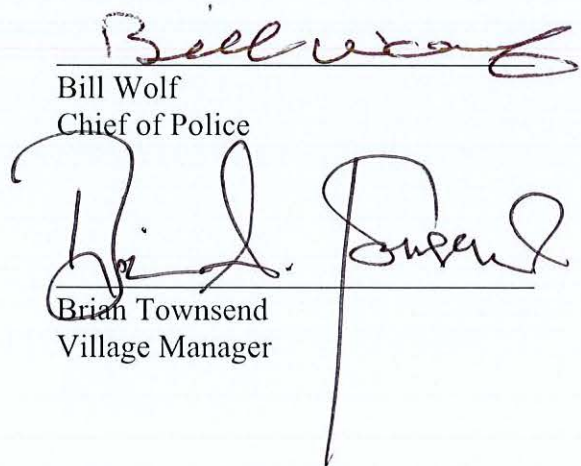 Bill Wolf
Bill Wolf
Chief of Police
Brian S. Townsend
Brian Townsend
Village Manager